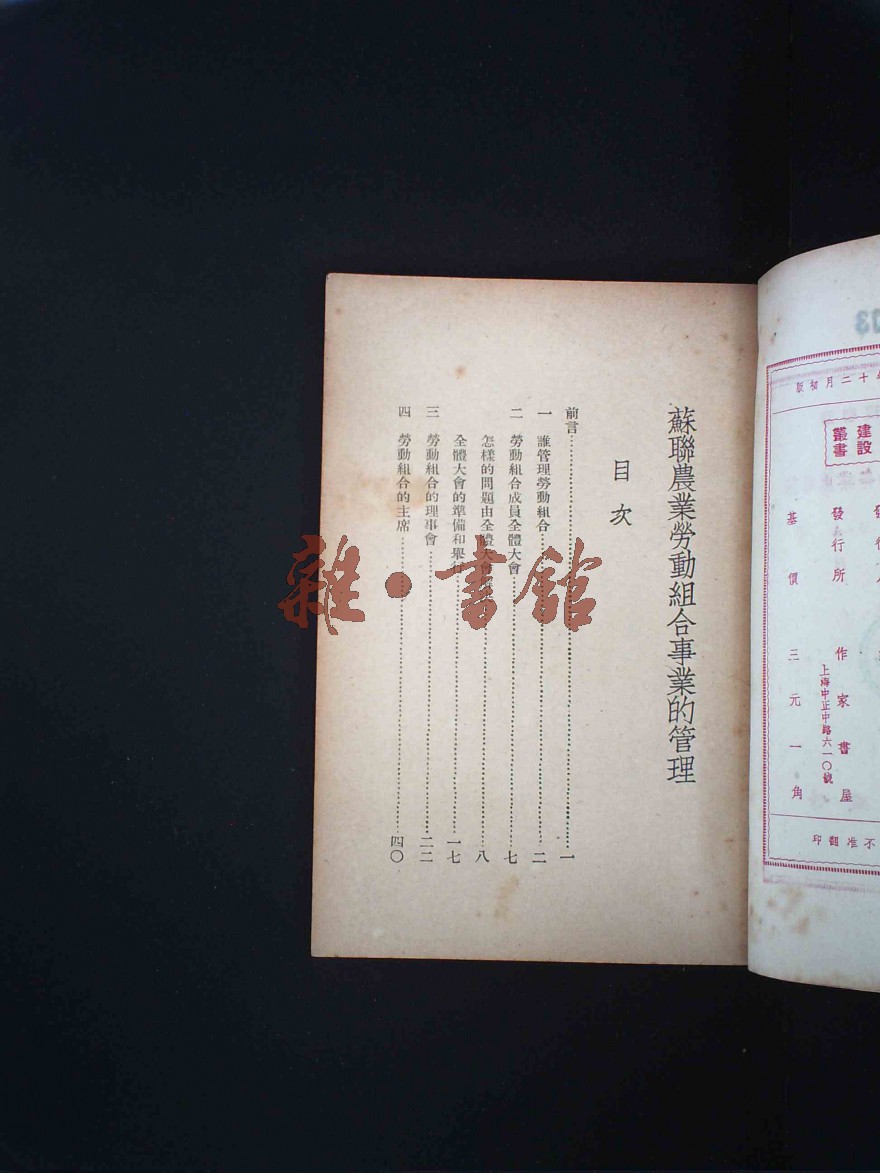 蘇聯農業勞動組合事業的管理
目次
前言 一
一 誰管理勞動組合 二
二 勞動組合成員全體大會 七
怎樣的問題由全體大會 八
全體大會的準備和舉行 一七
三 勞動組合的理事會 二二
四 勞動組合的主席 四〇
雜·書館
十二月初版
建設
叢書
發行所 作家書屋
上海中正中路六一〇號
基價 三元一角
不准翻印